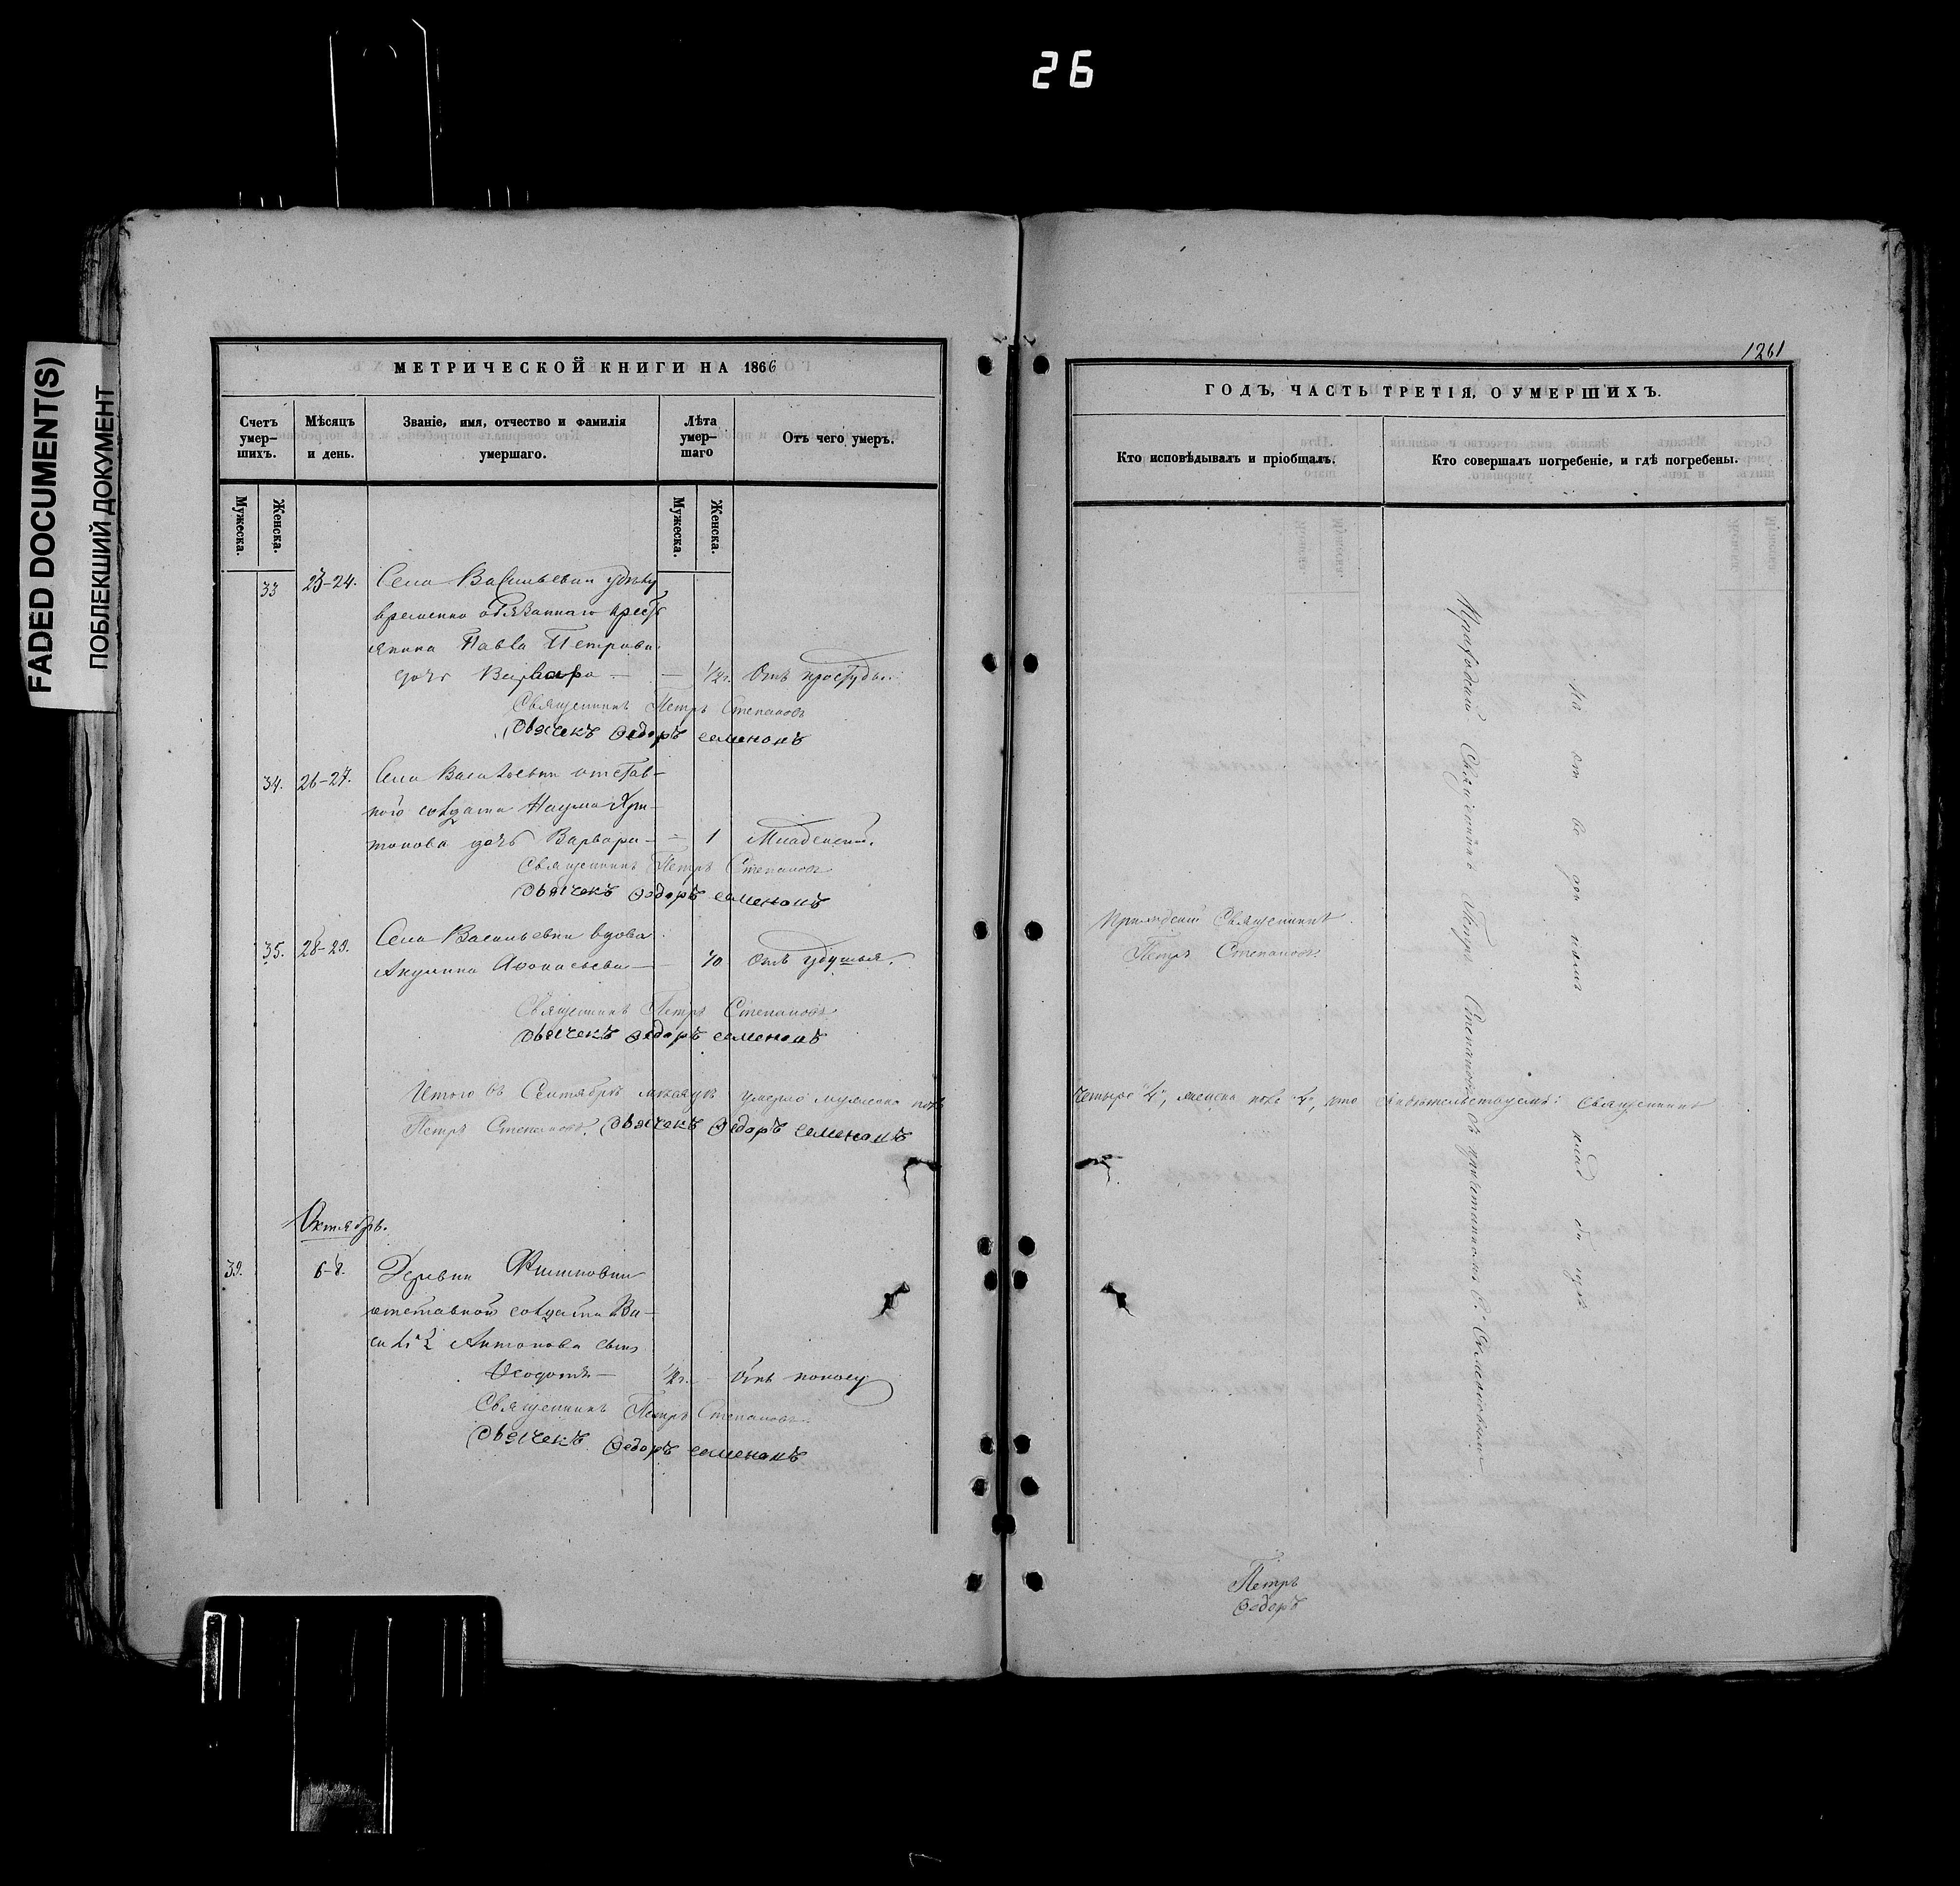 26
FADED DOCUMENT(S)
ПОБЛЕКШИЙ ДОКУМЕНТ
МЕТРИЧЕСКОЙ КНИГИ НА 1866
Счетъ умер-шихъ.
Мѣсяцъ и день.
Званіе, имя, отчество и фамилія умершаго.
Лѣта умер-шаго
Отъ чего умеръ.
Мужеска.
Женска.
Мужеска.
Женска.
33 23-24. Села Васильевки
временно обязаннаго кресть
янина Павла Петрова
дочь Варвара — — Отъ простуды.
Священникъ Петръ Степановъ
Дьячекъ Ѳедоръ Семеновъ
34. 26-27. Села Васильевки отстав-
ного солдата Наума Хри-
тонова дочь Варвара — — 1 Младенской.
Священникъ Петръ Степановъ
Дьячекъ Ѳедоръ Семеновъ
35. 28-29. Села Васильевки вдова
Акулина Аѳонасьева — 70 Отъ удушья.
Священникъ Петръ Степановъ
Дьячекъ Ѳедоръ Семеновъ
Итого въ Сентябрѣ мѣсяцѣ умерло мужеска пола
Петръ Степановъ. Дьячекъ Ѳедоръ Семеновъ
Октябрь.
39. 6-8. Деревни
отставной солдата Ва-
силія Антонова сынъ
Ѳедотъ — Отъ поносу
Священникъ Петръ Степановъ
Дьячекъ Ѳедоръ Семеновъ
1261
ГОДЪ, ЧАСТЬ ТРЕТІЯ, О УМЕРШИХЪ.
Кто исповѣдывалъ и пріобщалъ.
Кто совершалъ погребеніе, и гдѣ погребены.
Приходскій Священникъ
Петръ Степановъ.
четыре "4", женска пола "4", что свидѣтельствуемъ: Священникъ
Приходскій Священникъ Петръ Степановъ съ причетникомъ Ѳ. Семеновымъ
Петръ
Ѳедоръ